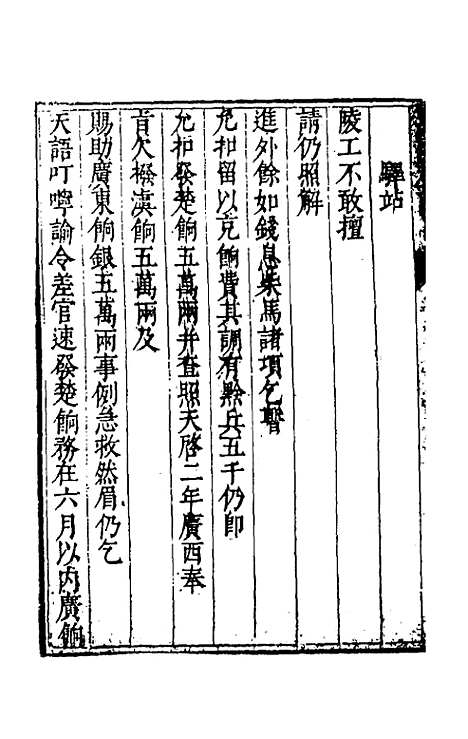 驛站
陵工不敢擅
請仍照解
進外餘如錢息柴馬諸項乞暫
允扣留以充餉費其調有黔兵五千仍即
允扣發楚餉五萬兩并查照天啓二年廣西奉
旨欠撥滇餉五萬兩及
賜助廣東餉銀五萬兩事例急救然眉仍乞
天語叮嚀諭令差官速發楚餉務在六月以内廣餉